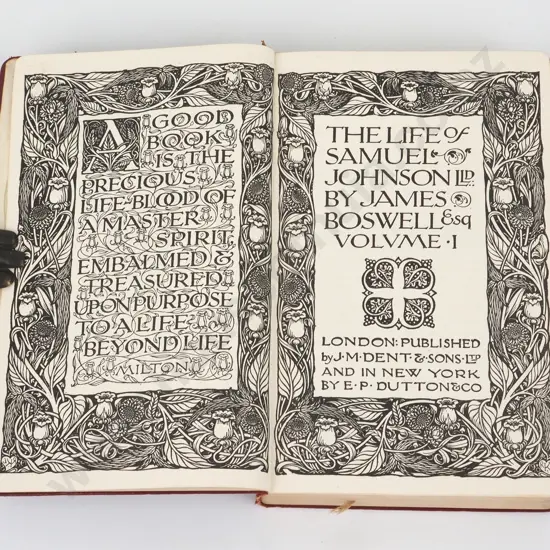 A GOOD
BOOK
IS THE
PRECIOUS
LIFE-BLOOD OF
A MASTER
SPIRIT,
EMBALMED &
TREASURED
UPON PURPOSE
TO A LIFE
BEYOND LIFE
MILTON
THE LIFE of
SAMUEL
JOHNSON LLD.
BY JAMES
BOSWELL Esq
VOLVME · I
LONDON: PUBLISHED
by J. M. DENT & SONS LTD
AND IN NEW YORK
BY E. P. DUTTON & CO